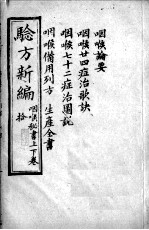 咽喉論要
咽喉廿四症治歌訣
咽喉七十二症治圖説
咽喉備用列方 生產全書
驗方新編
咽喉秘書上下卷
拾